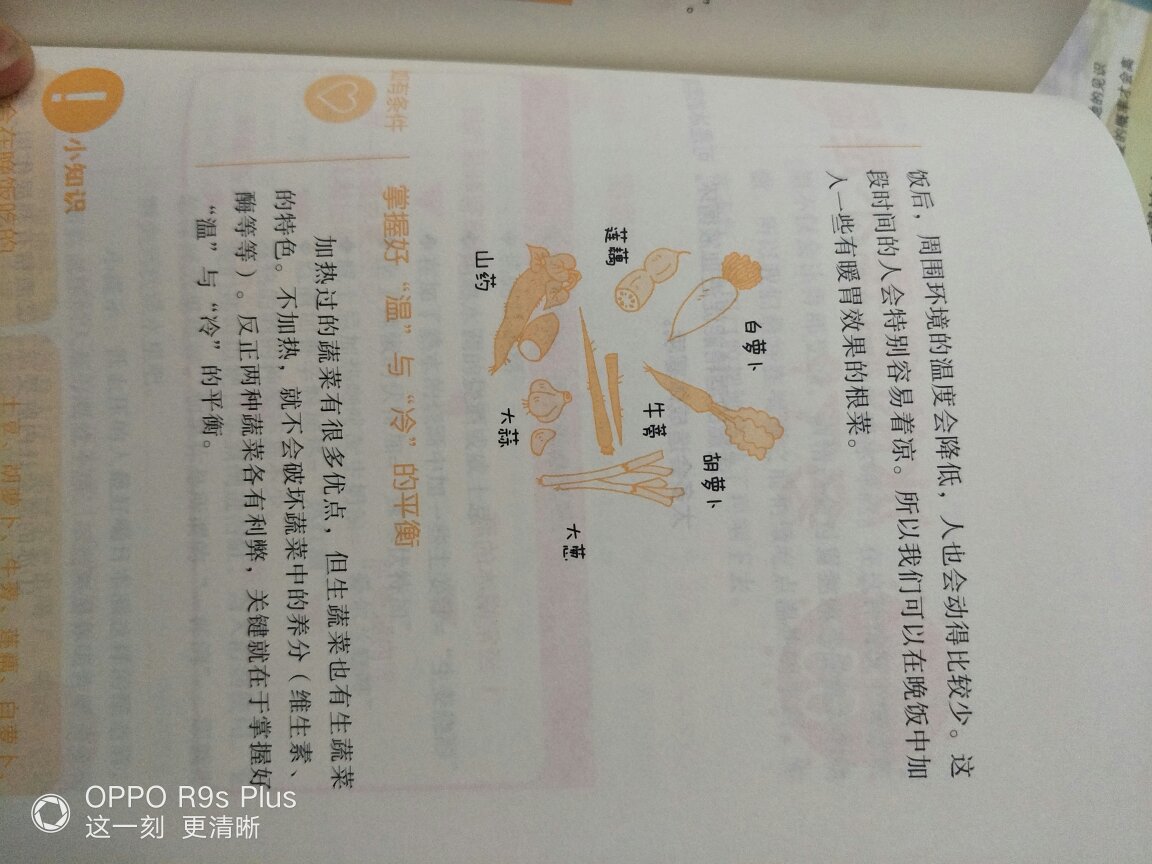 饭后，周围环境的温度会降低，人也会动得比较少。这
段时间的人会特别容易着凉。所以我们可以在晚饭中加
入一些有暖胃效果的根菜。
白萝卜
莲藕
胡萝卜
牛蒡
山药
大蒜
大葱
掌握好“温”与“冷”的平衡
加热过的蔬菜有很多优点，但生蔬菜也有生蔬菜
的特色。不加热，就不会破坏蔬菜中的养分（维生素、
酶等等）。反正两种蔬菜各有利弊，关键就在于掌握好
“温”与“冷”的平衡。
小知识
OPPO R9s Plus
这一刻 更清晰